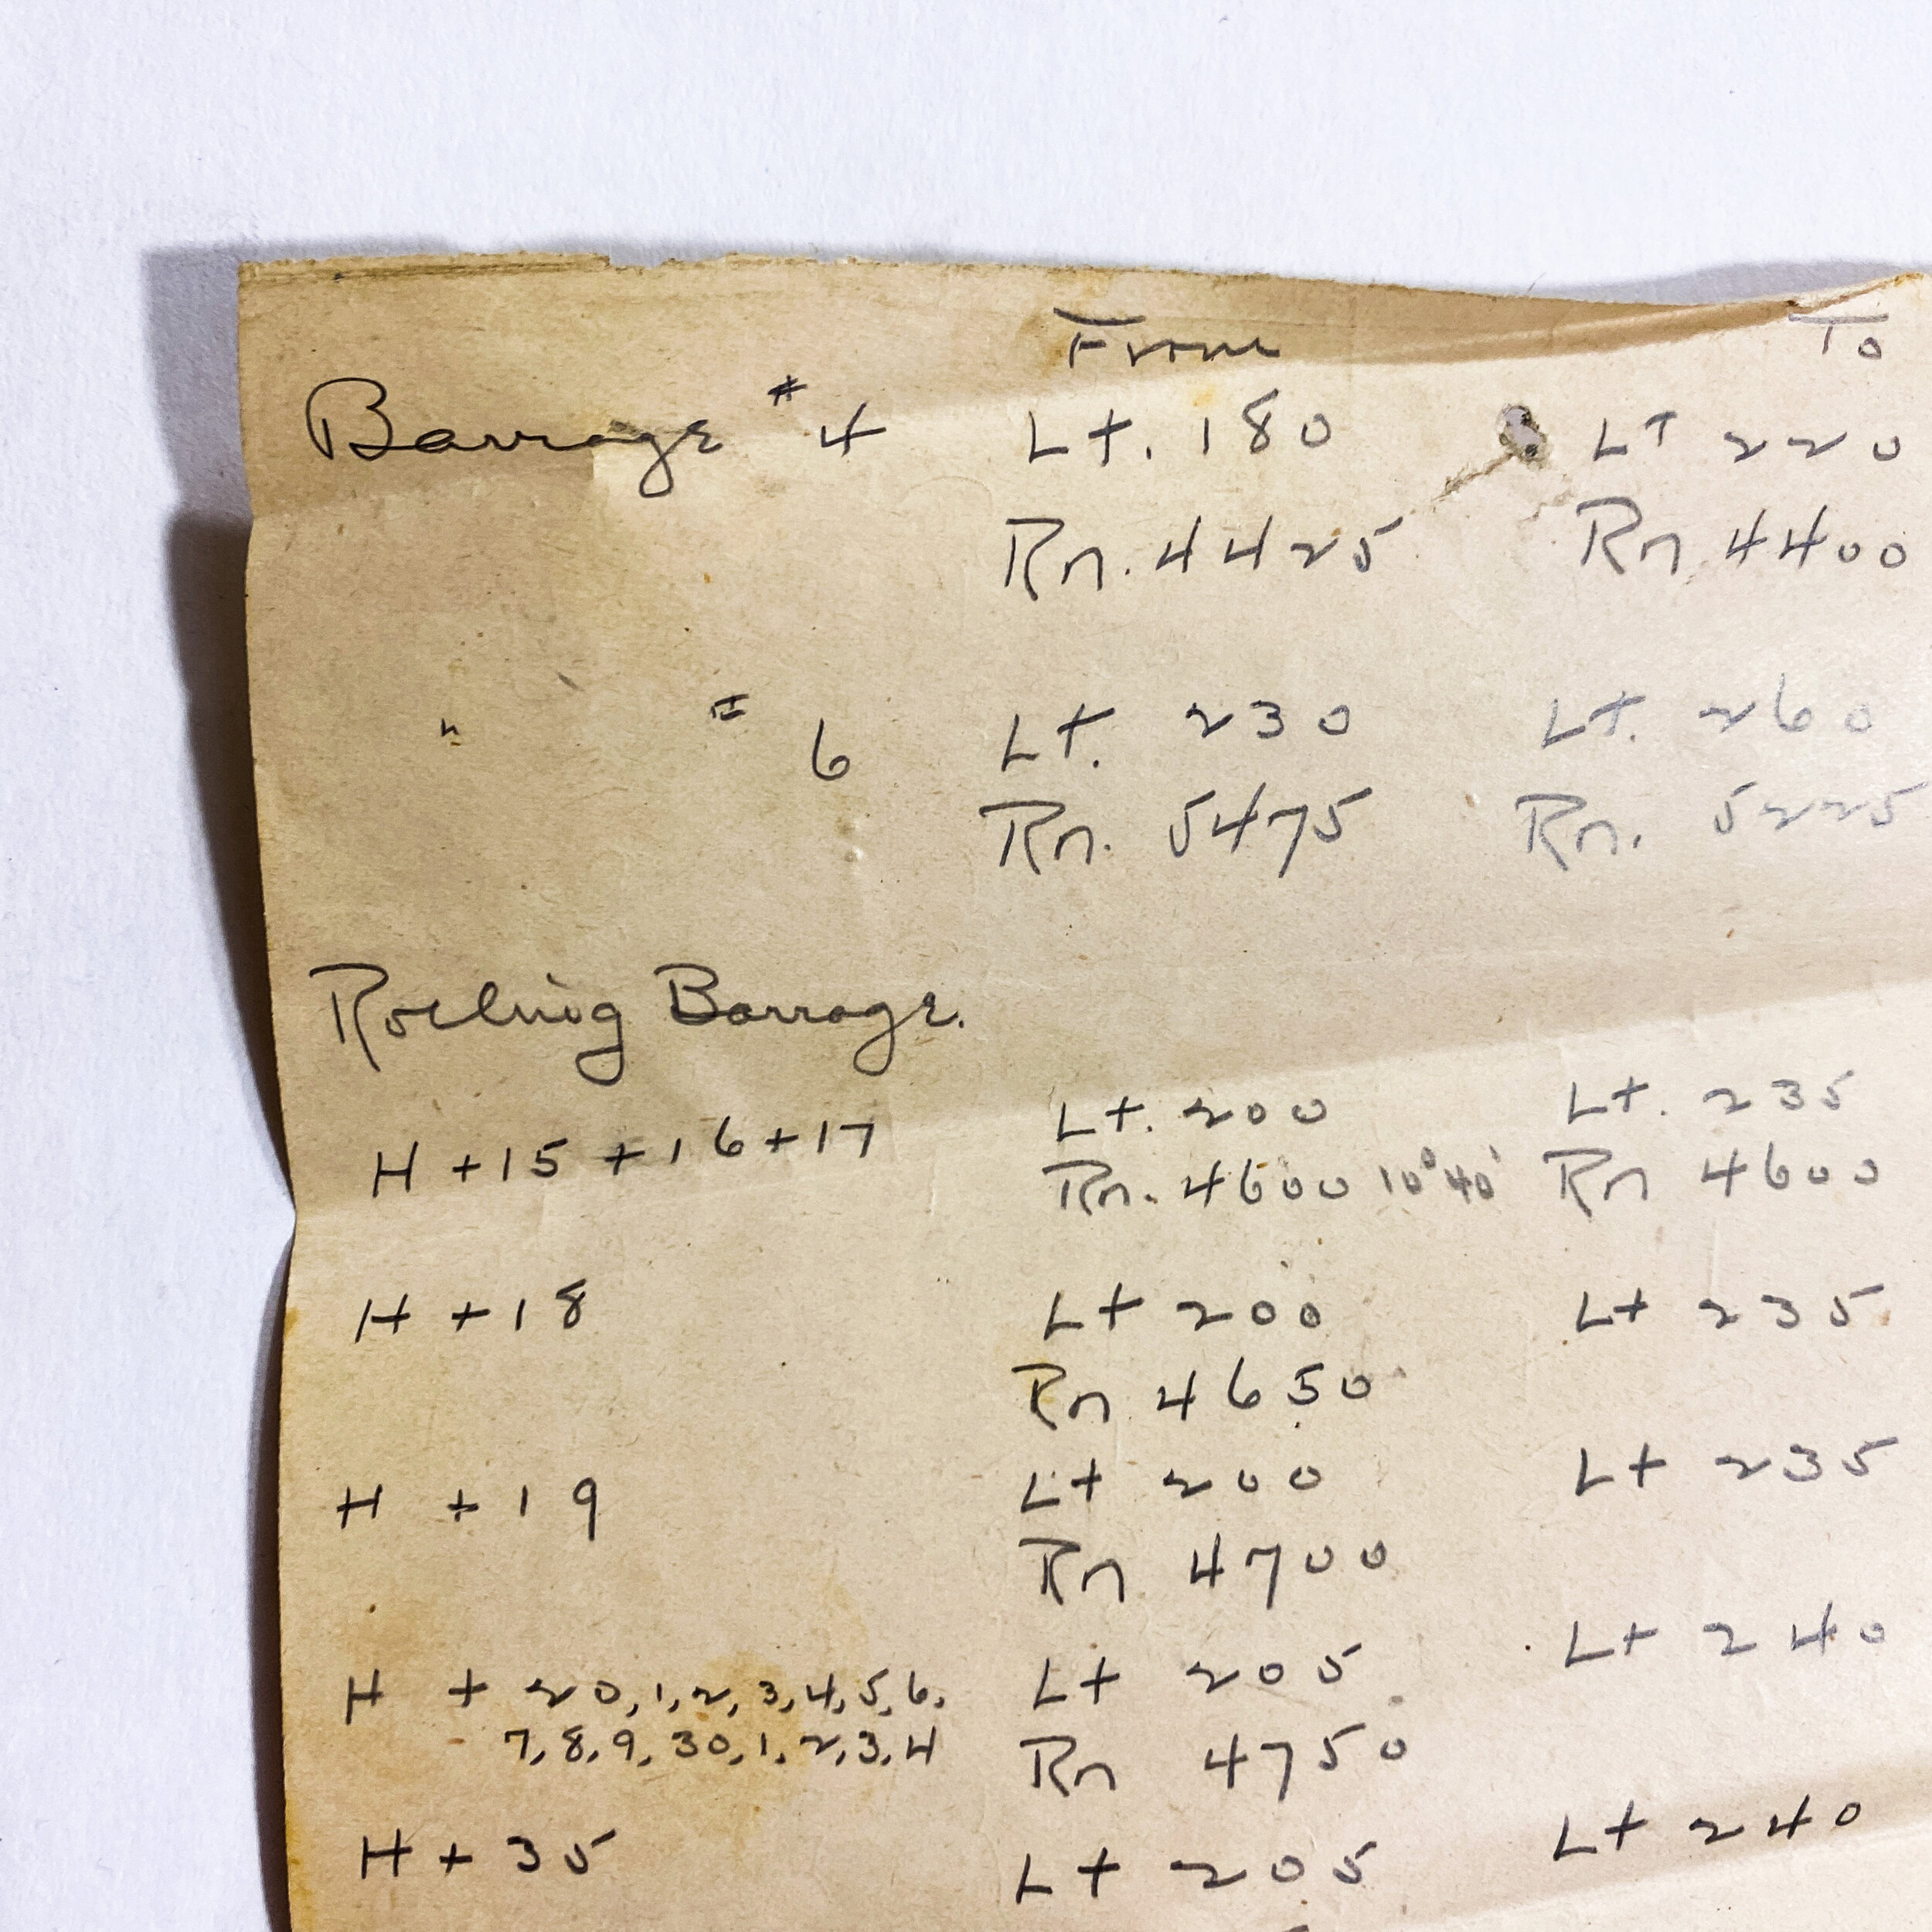 From To
Barrage # 4 Lt. 180 Lt 220
Rn. 4425 Rn 4400
" # 6 Lt. 230 Lt. 260
Rn. 5475 Rn. 5225
Rolling Barrage.
H +15 +16+17 Lt. 200 Lt. 235
Rn. 4600 10°40' Rn 4600
H +18 Lt 200 Lt 235
Rn 4650
H +19 Lt 200 Lt 235
Rn 4700
H + 20,1,2,3,4,5,6, Lt 205 Lt 240
7,8,9,30,1,2,3,4 Rn 4750
H + 35 Lt 205 Lt 240